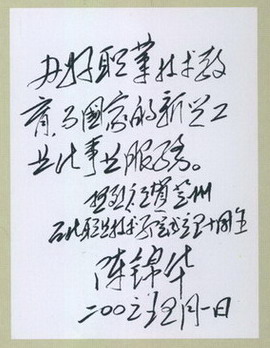 办好职业技术教
育，为国家的新兴工
业化事业服务。
热烈祝贺兰州
石化职业技术学院成立十周年
陈锦华
二00六年五月一日